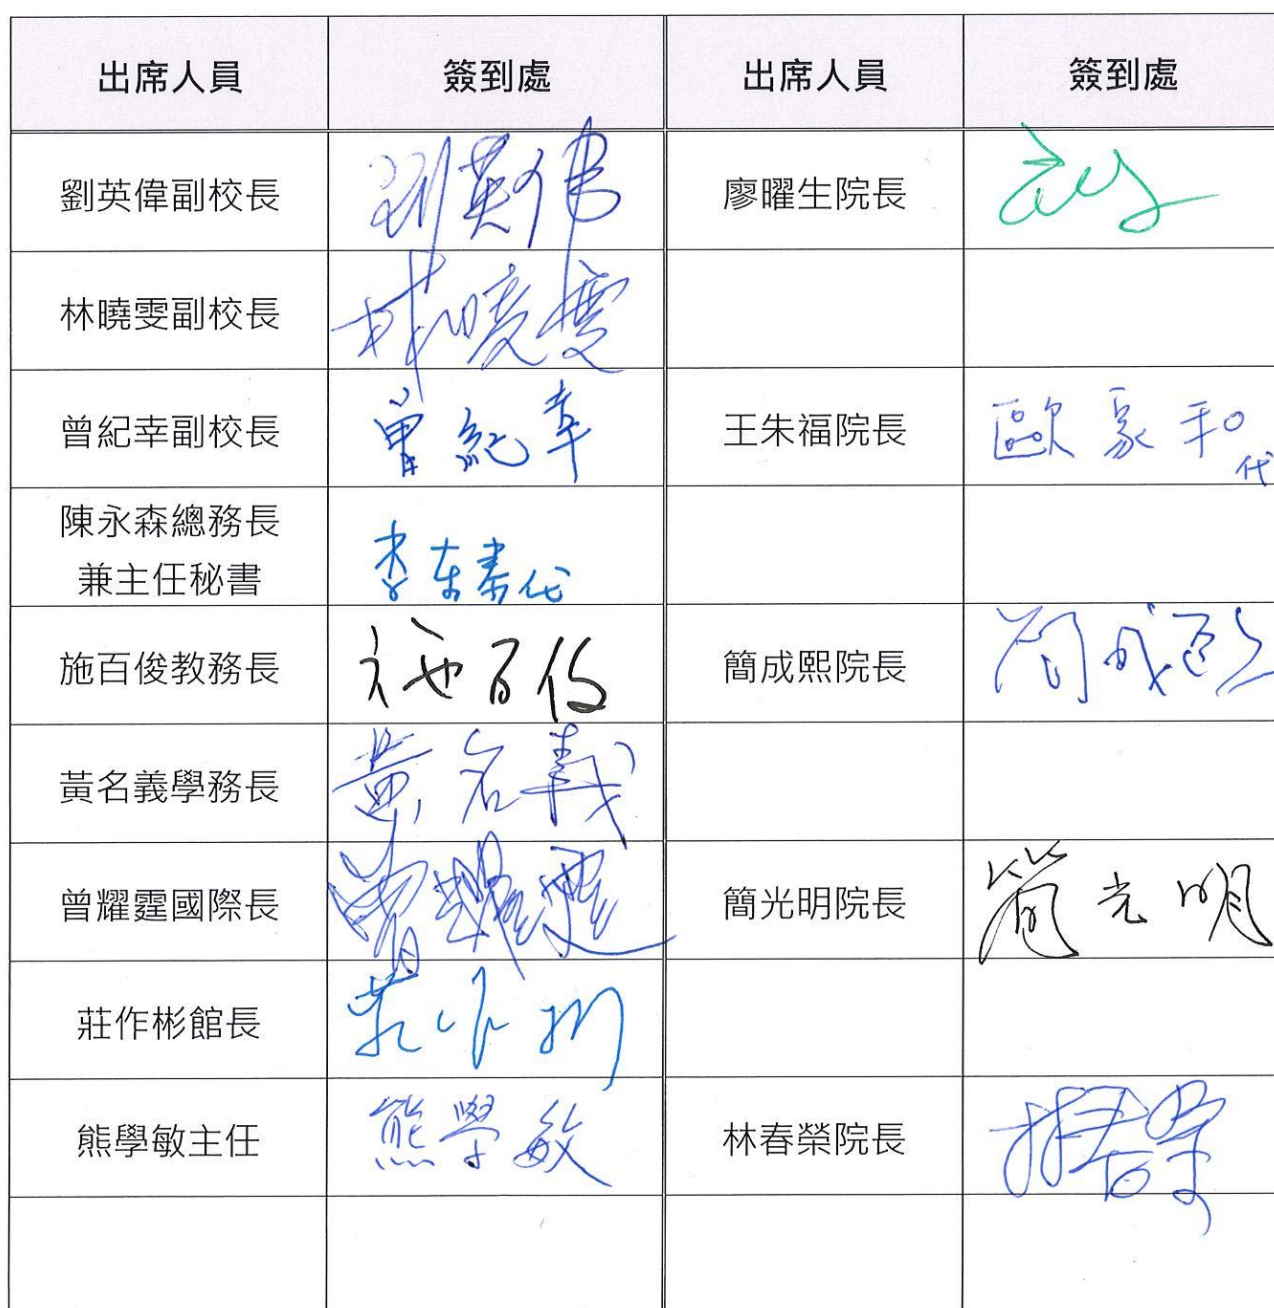 出席人員 簽到處 出席人員 簽到處
劉英偉副校長 劉英偉 廖曜生院長
林曉雯副校長 林曉雯
曾紀幸副校長 曾紀幸 王朱福院長 歐家和代
陳永森總務長
兼主任秘書 李東泰代
施百俊教務長 施百俊 簡成熙院長 簡成熙
黃名義學務長 黃名義
曾耀霆國際長 曾耀霆 簡光明院長 簡光明
莊作彬館長 莊作彬
熊學敏主任 熊學敏 林春榮院長 林春榮